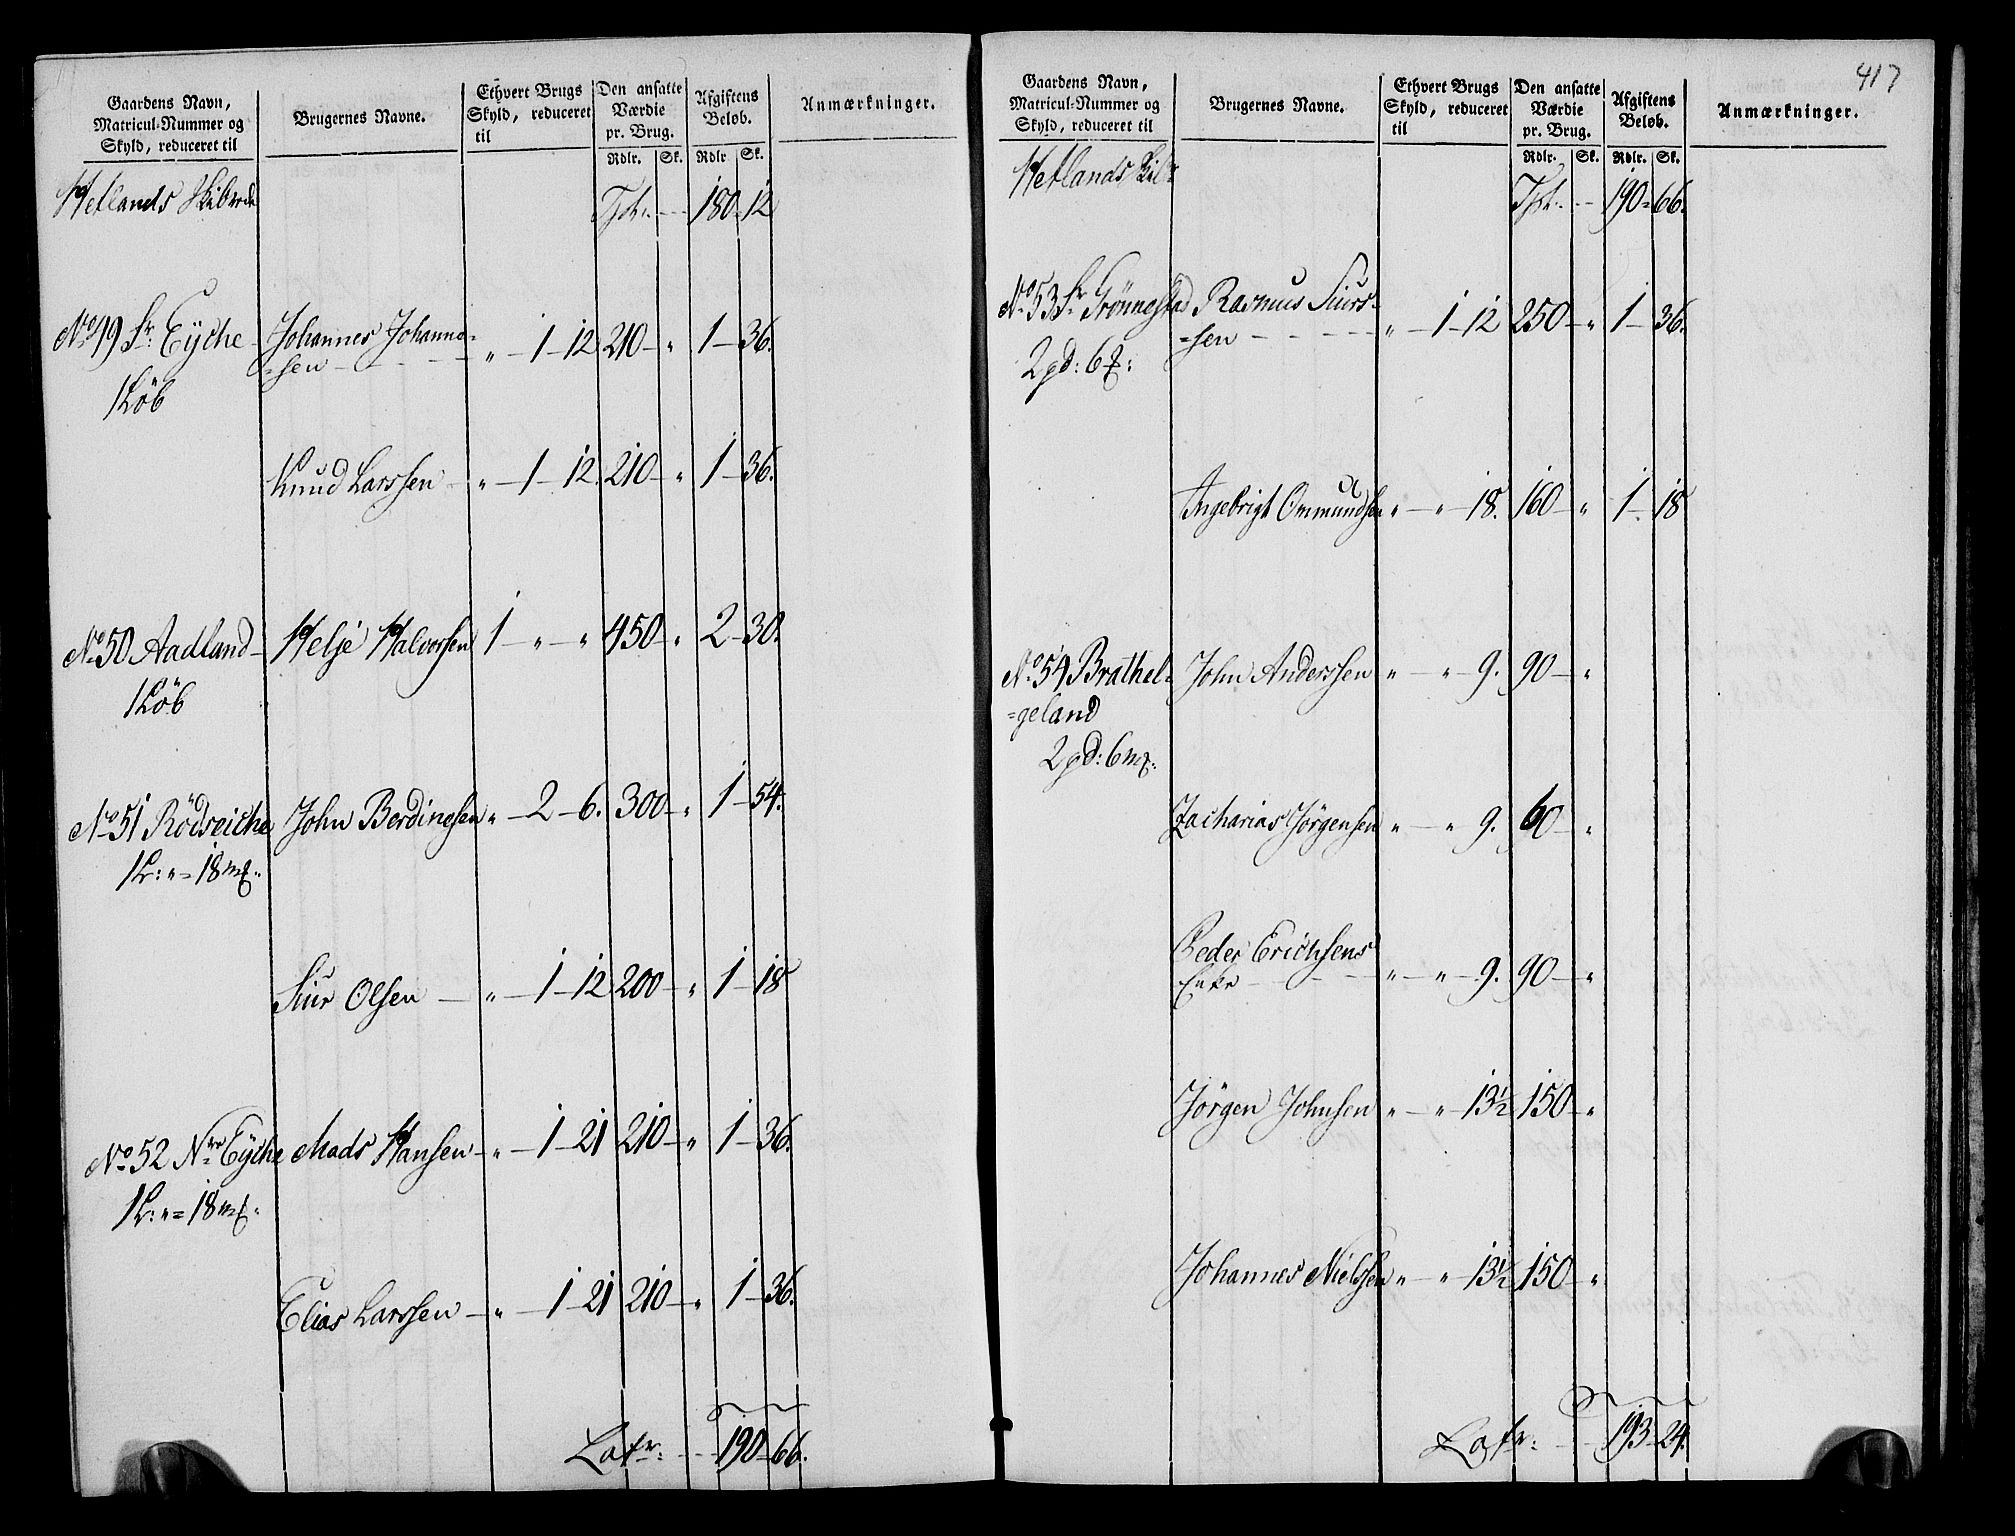 Gaardens Navn,
Matricul-Nummer og
Skyld, reduceret til
Brugernes Navne.
Ethvert Brugs
Skyld, reduceret
til
Den ansatte
Værdie
pr. Brug.
Rdlr. Sk.
Afgiftens
Beløb.
Rdlr Sk.
Anmærkninger.
Hetlands Skibrede Tpt. 180-12
No 49 Sr. Eyche Johannes Johanne= „-1-12 210-„ 1-36.
=sen
1 Löb
Knud Larssen „-1-12. 210-„ 1-36.
No 50 Aadland Helje Halvorsen 1-„-„ 450-„ 2-30.
1 Löb
No 51 Rödseiche John Berdinesen „-2-6. 300-„ 1-54.
1 L: „= 18 mk.
Siur Olsen „-1-12 200-„ 1-18
No 52 Nre Eyche Mads Hansen „-1-21 210-„ 1-36.
1 L: „= 18 mk.
Elias Larssen „-1-21 210-„ 1-36.
Latr: 190-66.
417
Gaardens Navn,
Matricul-Nummer og
Skyld, reduceret til
Brugernes Navne.
Ethvert Brugs
Skyld, reduceret
til
Den ansatte
Værdie
pr. Brug.
Rdlr. Sk.
Afgiftens
Beløb.
Rdlr. Sk.
Anmærkninger.
Hetlands Skib= Tpt. 190-66.
No 53 Sr. Grönnestad Rasmus Siurs= „-1-12 250-„ 1-36.
=sen
2 pd: 6 mk:
Ingebrigt Ommundsen „-„-18. 160-„ 1-18
No 54 Brathel= John Anderssen „-„-9. 90-„
=geland
2 pd: 6 mk.
Zacharias Jörgensen „-„-9. 60-„
Peder Erichsens
Enke „-„-9. 90-„
Jörgen Johnsen „-„-13½ 150-„
Johannes Nielsen „-„-13½ 150-„
Latr: 193-24.